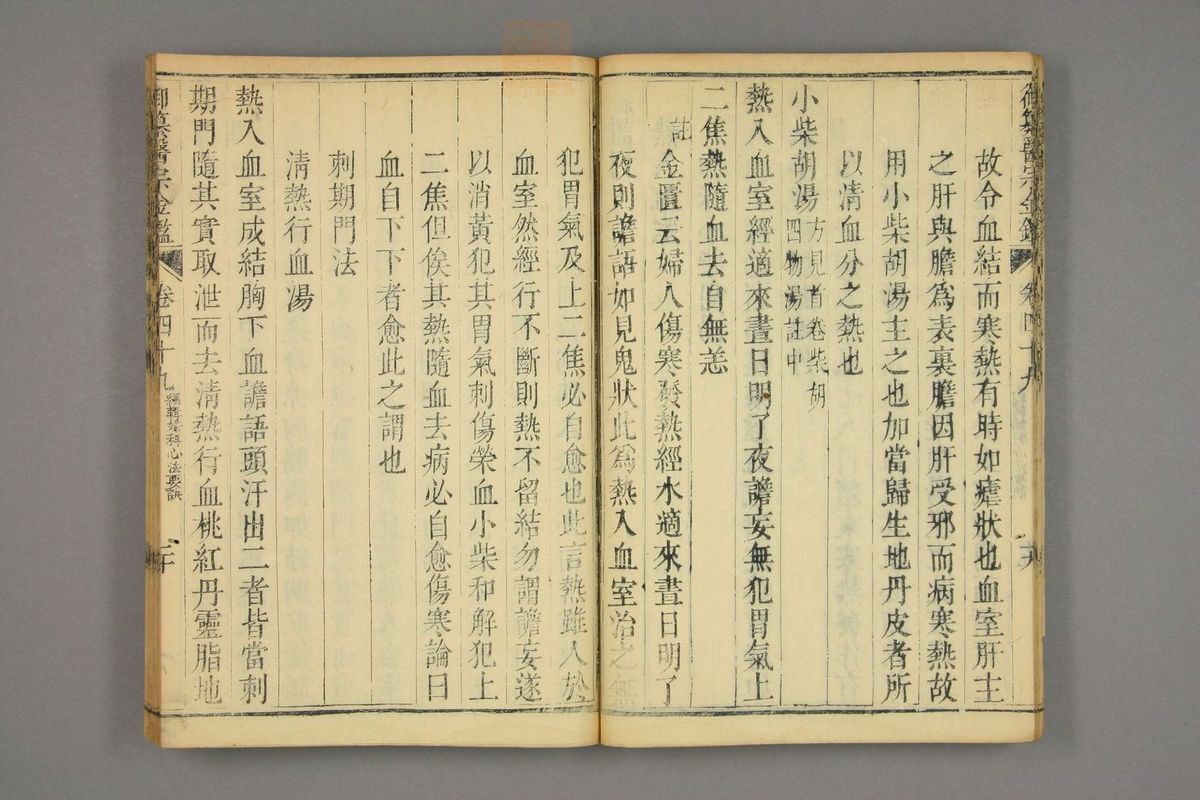 御纂醫宗金鑑 卷四十九
故令血結而寒熱有時如瘧狀也血室肝主
之肝與膽為表裏膽因肝受邪而病寒熱故
用小柴胡湯主之也加當歸生地丹皮者所
以清血分之熱也
小柴胡湯方見首卷柴胡
四物湯註中
熱入血室經適來晝日明了夜譫妄無犯胃氣上
二焦熱隨血去自無恙
註金匱云婦人傷寒發熱經水適來晝日明了
夜則譫語如見鬼狀此為熱入血室治之無
犯胃氣及上二焦必自愈也此言熱雖入於
血室然經行不斷則熱不留結勿謂譫妄遂
以消黃犯其胃氣刺傷榮血小柴和解犯上
二焦但俟其熱隨血去病必自愈傷寒論曰
血自下下者愈此之謂也
刺期門法
清熱行血湯
熱入血室成結胸下血譫語頭汗出二者皆當刺
期門隨其實取泄而去清熱行血桃紅丹靈脂地
御纂醫宗金鑑 卷四十九 編輯婦科心法要訣